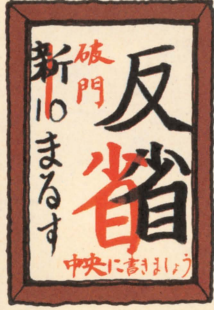 反省
省
破門
新10まるす
中央に書きましょう